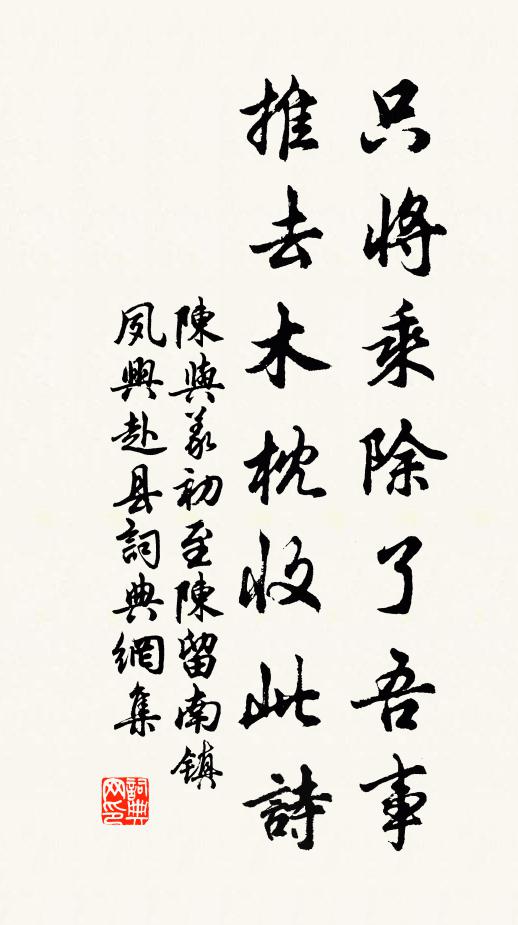 只將乘除了吾事
推去木枕收此詩
陳與義初至陳留南鎮
夙興赴县詞典網集
詞典网印